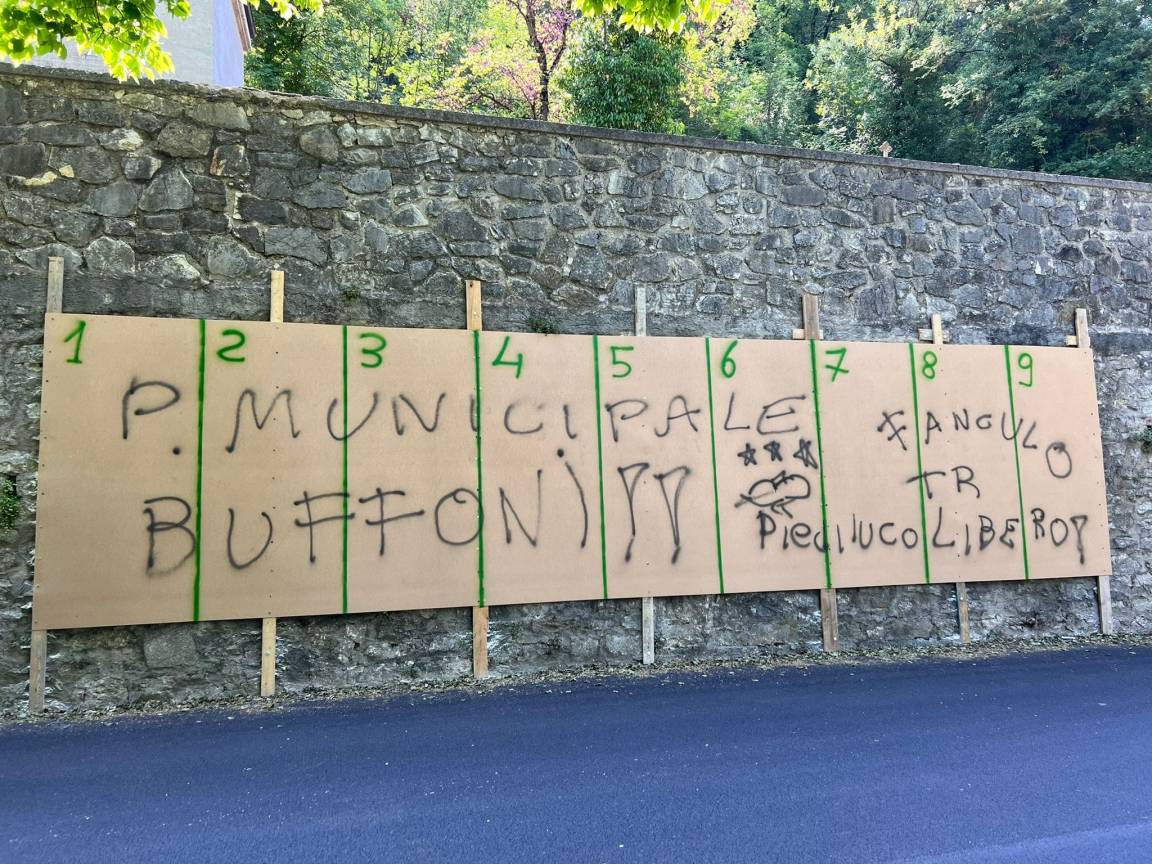 1 2 3 4 5 6 7 8 9
P. MUNICIPALE
BUFFONI!!!
FANGULO
TR
PIEDILUCO LIBERO!